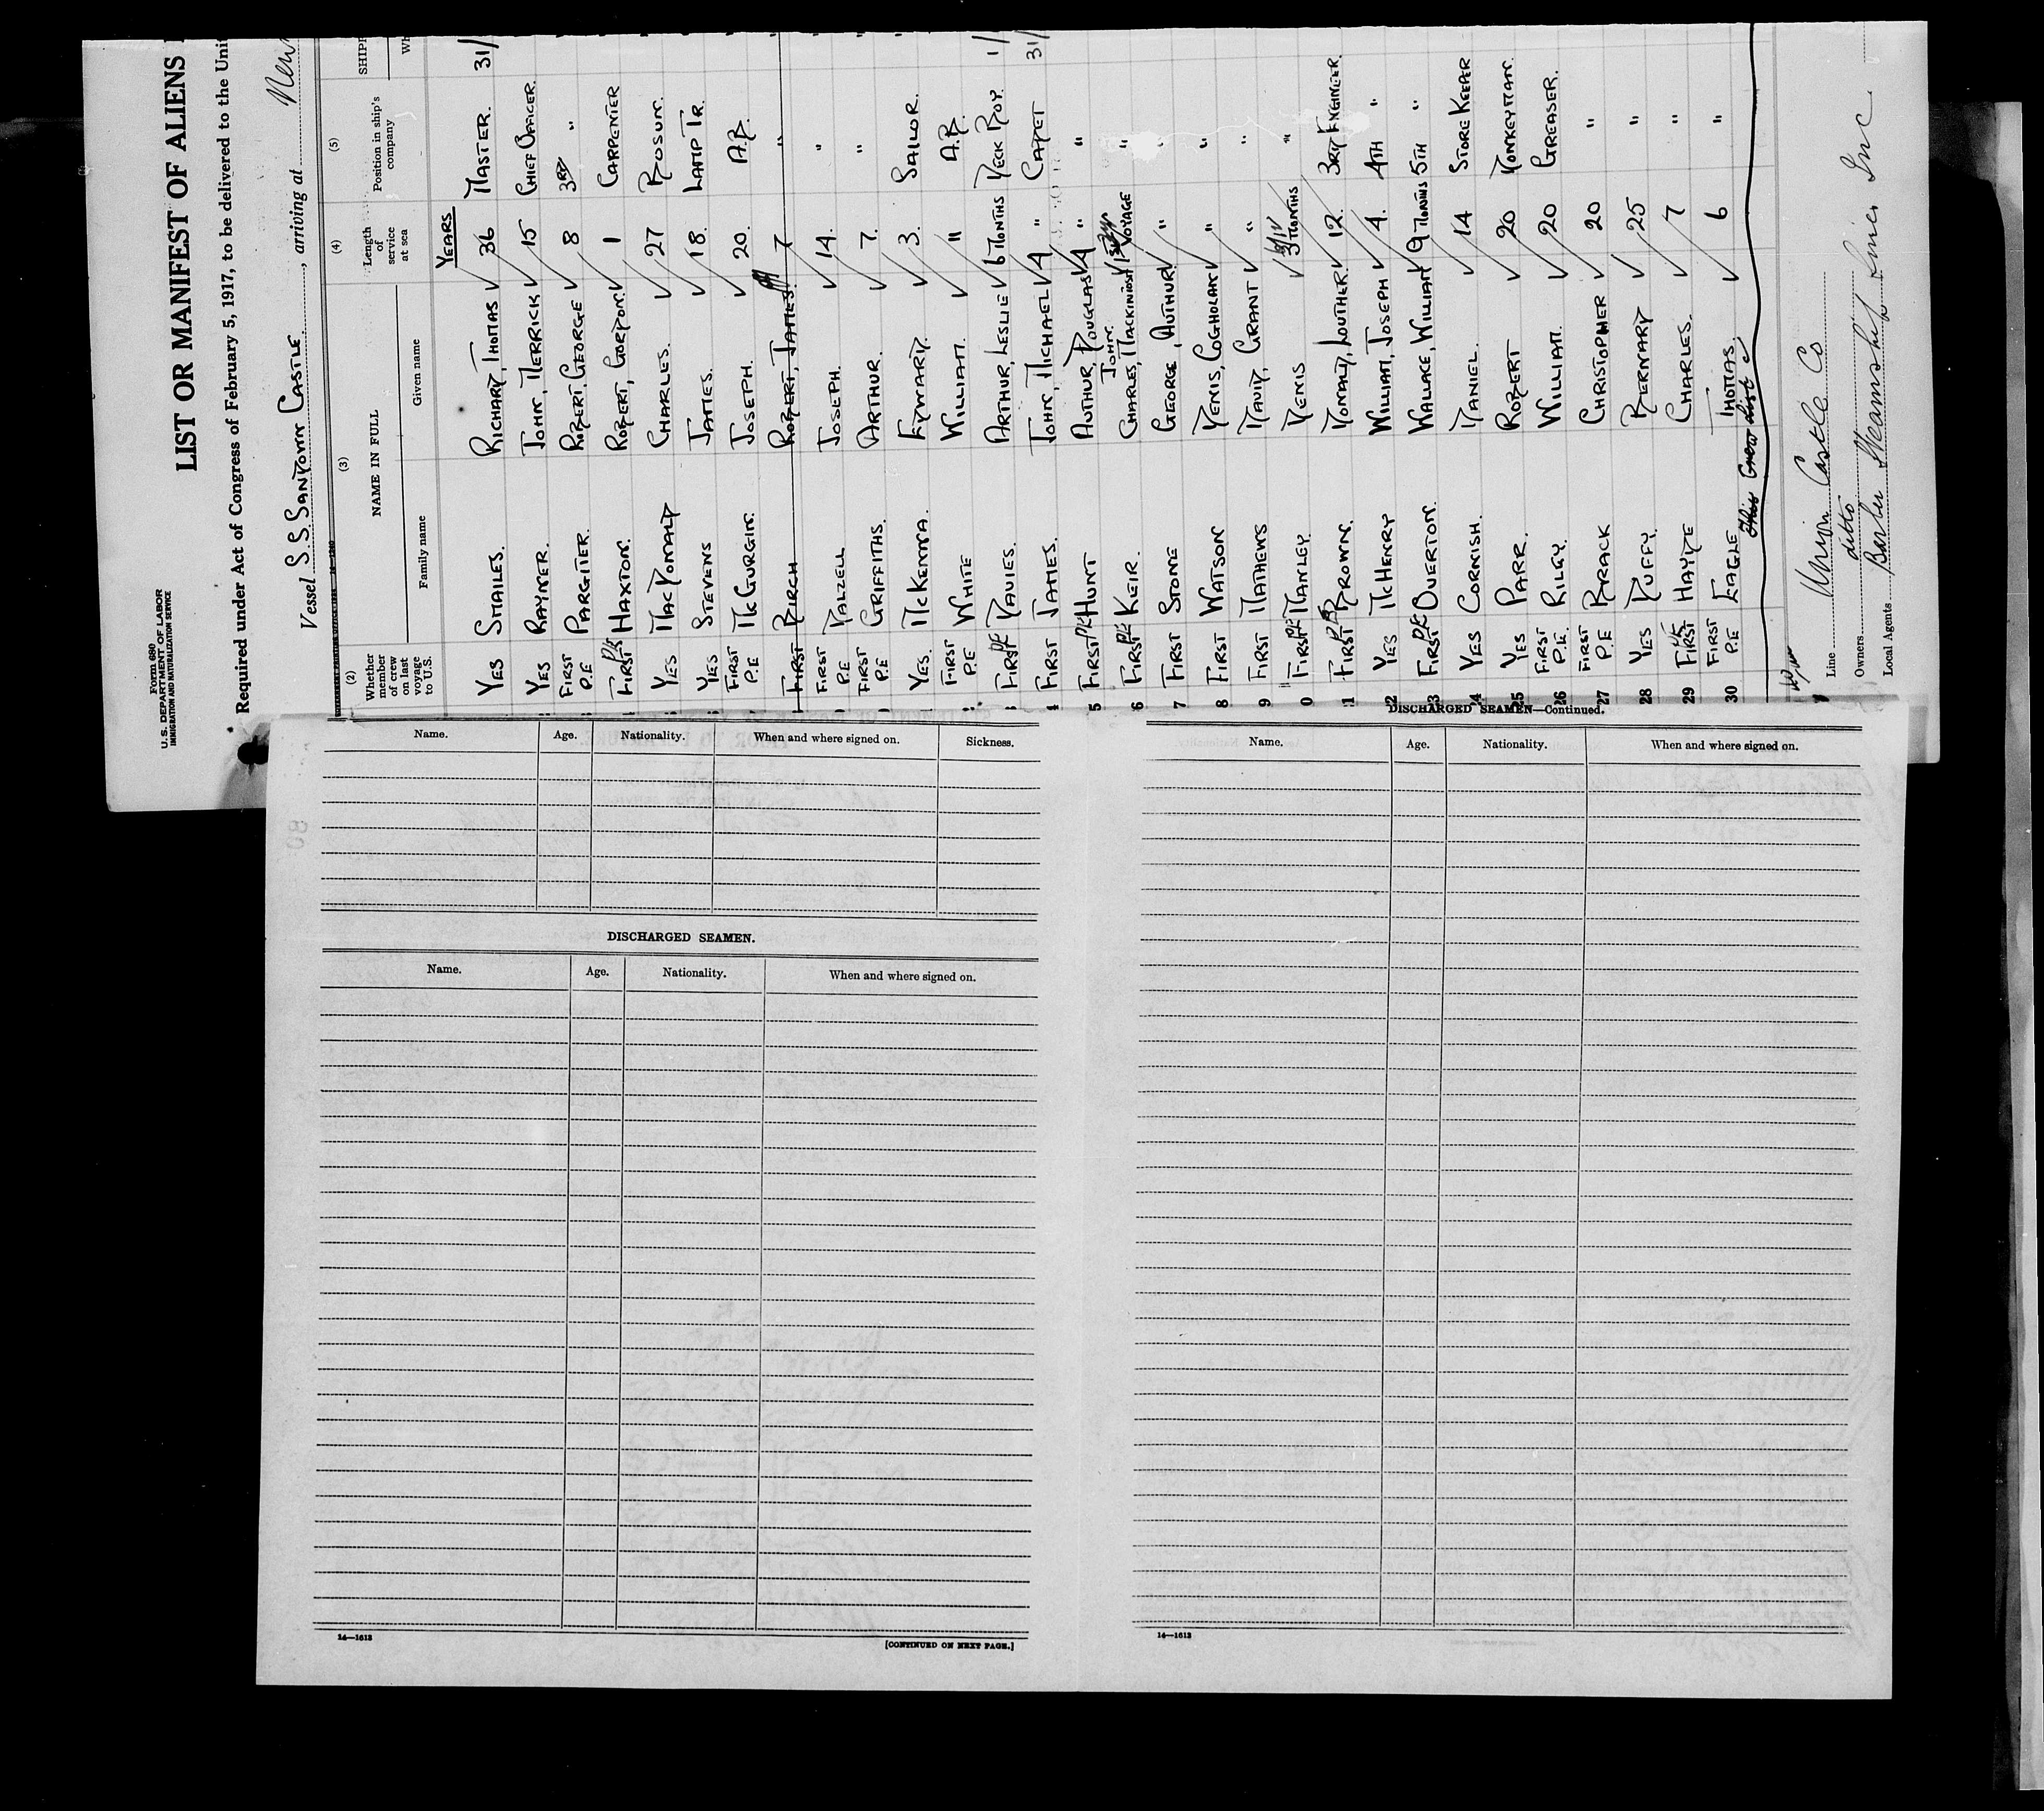 Form 680
U. S. DEPARTMENT OF LABOR
IMMIGRATION AND NATURALIZATION SERVICE
LIST OR MANIFEST OF ALIENS
Required under Act of Congress of February 5, 1917, to be delivered to the Unit
Vessel S.S. SANDOWN CASTLE, arriving at New
(2) (3) (4) (5)
Whether member of crew on last voyage to U.S. NAME IN FULL Length of service at sea Position in ship's company SHIPP
Family name Given name WH
YEARS
YES SMAILES. RICHARD, THOMAS 36 MASTER. 31/
YES RAYNER. JOHN, MERRICK 15 CHIEF OFFICER.
FIRST P.E PARGITER. ROBERT. GEORGE 8 3RD "
FIRST PE HAXTON. ROBERT, GORDON. 1 CARPENTER
YES MACDONALD CHARLES. 27 BOSUN.
YES STEVENS JAMES. 18. LAMP TR.
FIRST P.E McGURGIN. JOSEPH. 20. A.B.
FIRST BIRCH ROBERT, JAMES. 7 "
FIRST P.E DALZELL JOSEPH. 14. "
FIRST P.E GRIFFITHS. ARTHUR. 7. "
YES. McKENNA. EDWARD. 3. SAILOR.
FIRST P.E WHITE WILLIAM. " A.B.
3 FIRST PE DAVIES. ARTHUR, LESLIE 6 MONTHS DECK BOY. 1/
4 FIRST JAMES. JOHN, MICHAEL 4 " CADET 31/
5 FIRST PE HUNT AUTHUR, DOUGLAS 4 " "
6 FIRST PE KEIR. JOHN. CHARLES, MACKINTOSH 1ST VOYAGE "
7 FIRST STONE GEORGE, AUTHUR " "
8 FIRST WATSON DENIS, COGHOLAN " "
9 FIRST MATHEWS DAVID, GRANT " "
0 FIRST PE MANLEY. DENIS 3 MONTHS "
1 FIRST PE BROWN. DONALD, LOUTHER 12. 3RD ENGINEER.
2 YES McHENRY WILLIAM, JOSEPH 4. 4TH "
3 FIRST PE OVERTON. WALLACE, WILLIAM 9 MONTHS 5TH "
4 YES CORNISH. DANIEL. 14 STORE KEEPER
25 YES PARR. ROBERT 20 DONKEYMAN.
26 FIRST P.E. RILEY. WILLIAM. 20 GREASER.
27 FIRST P.E BRACK CHRISTOPHER 20 "
28 YES DUFFY. BERNARD 25 "
29 FIRST HAYDE CHARLES. 7 "
30 FIRST P.E EAGLE THOMAS. 6 "
This Crew List
Line Union Castle Co
Owners ditto
Local Agents Barber Steamship Lines Inc
Name. Age. Nationality. When and where signed on. Sickness.
DISCHARGED SEAMEN.
Name. Age. Nationality. When and where signed on.
14—1613
[CONTINUED ON NEXT PAGE.]
DISCHARGED SEAMEN—Continued.
Name. Age. Nationality. When and where signed on.
14—1613